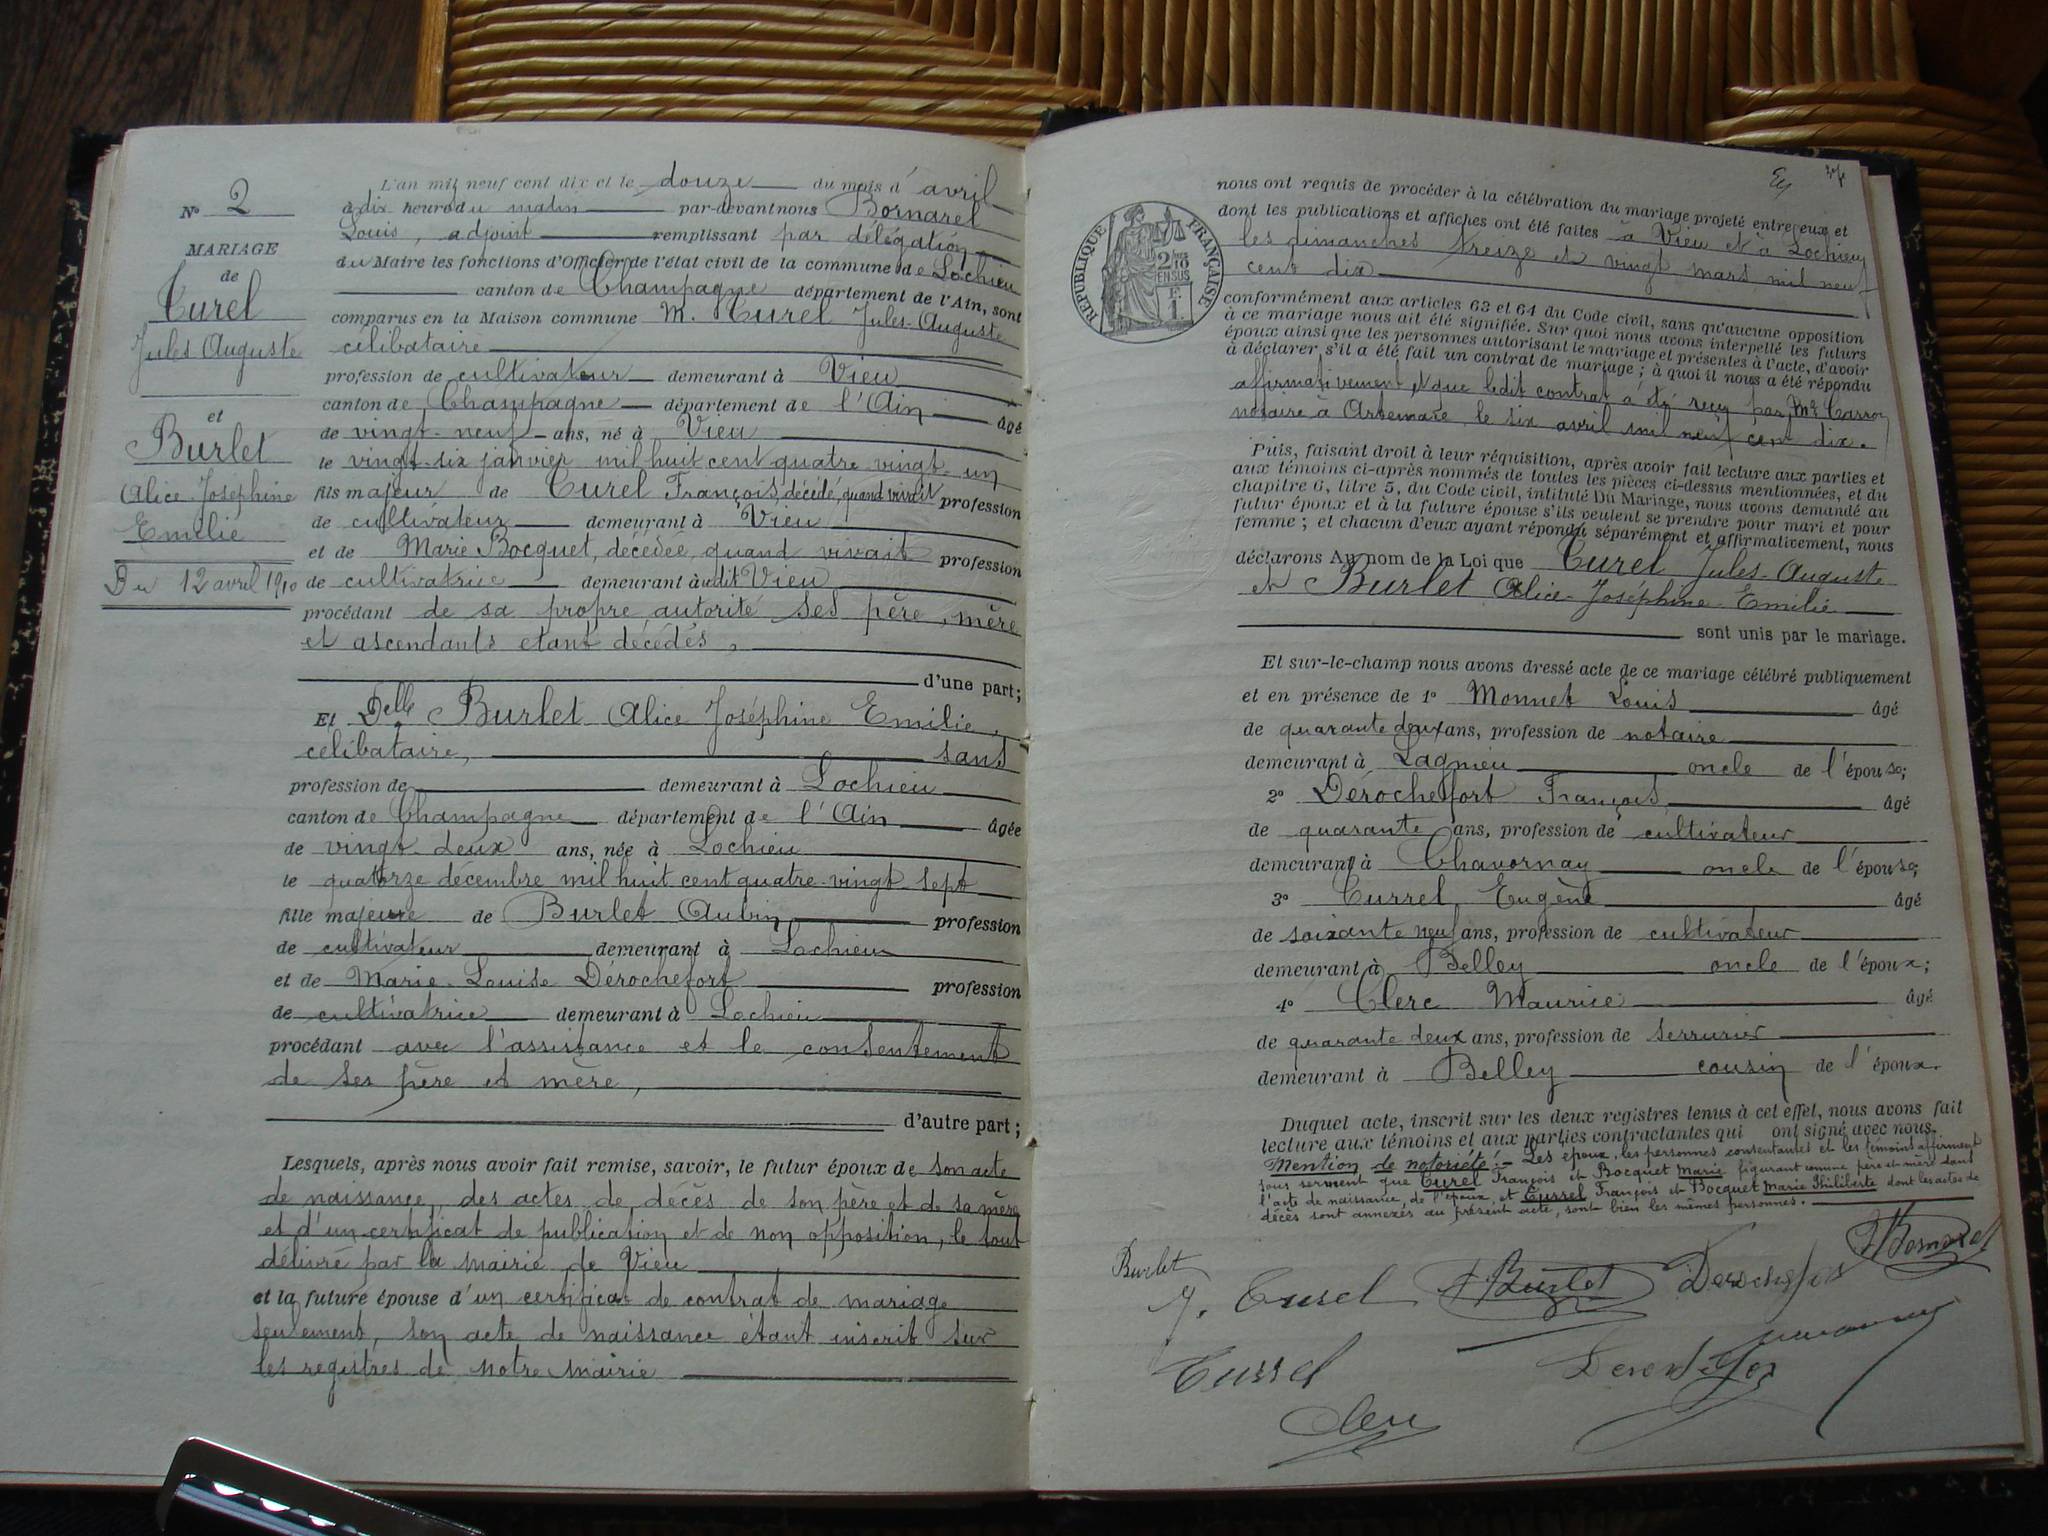 N° 2
MARIAGE
de
Curel
Jules Auguste
et
Burlet
Alice Joséphine
Emélie
Du 12 avril 1910
L'an mil neuf cent dix et le douze du mois d'avril
à dix heure du matin par-devant nous Bornarel
Louis, adjoint remplissant par délégation
du Maire les fonctions d'Officier de l'état civil de la commune de Lochieu
canton de Champagne département de l'Ain, sont
comparus en la Maison commune M. Curel Jules-Auguste
célibataire
profession de cultivateur demeurant à Vieu
canton de Champagne département de l'Ain âgé
de vingt-neuf ans, né à Vieu
le vingt-six janvier mil huit cent quatre vingt-un
fils majeur de Curel François, décédé, quand vivait profession
de cultivateur demeurant à Vieu
et de Marie Bocquet, décédée, quand vivait profession
de cultivatrice demeurant à udit Vieu
procédant de sa propre autorité ses père, mère
et ascendants etant décédés,
d'une part;
Et Delle Burlet Alice Joséphine Emilie,
célibataire, sans
profession de demeurant à Lochieu
canton de Champagne département de l'Ain âgée
de vingt-deux ans, née à Lochieu
le quatorze décembre mil huit cent quatre-vingt sept
fille majeure de Burlet Aubin profession
de cultivateur demeurant à Lochieu
et de Marie-Louise Dérochefort profession
de cultivatrice demeurant à Lochieu
procédant avec l'assistance et le consentement
de ses père et mère,
d'autre part;
Lesquels, après nous avoir fait remise, savoir, le futur époux de son acte
de naissance, des actes de décès de son père et de sa mère
et d'un certificat de publication et de non opposition, le tout
délivré par la mairie de Vieu
et la future épouse d'un certificat de contrat de mariage
seulement, son acte de naissance étant inscrit sur
les registres de notre mairie
RÉPUBLIQUE FRANÇAISE
2/10
EN SUS
nous ont requis de procéder à la célébration du mariage projeté entre eux et
dont les publications et affiches ont été faites à Vieu et à Lochieu
les dimanches treize et vingt mars mil neuf
cent dix
conformément aux articles 63 et 64 du Code civil, sans qu'aucune opposition
à ce mariage nous ait été signifiée. Sur quoi nous avons interpellé les futurs
époux ainsi que les personnes autorisant le mariage et présentes à l'acte, d'avoir
à déclarer s'il a été fait un contrat de mariage; à quoi il nous a été répondu
affirmativement et que ledit contrat a été reçu par Me Carron
notaire à Artemare, le six avril mil neuf cent dix.
Puis, faisant droit à leur réquisition, après avoir fait lecture aux parties et
aux témoins ci-après nommés de toutes les pièces ci-dessus mentionnées, et du
chapitre 6, titre 5, du Code civil, intitulé Du Mariage, nous avons demandé au
futur époux et à la future épouse s'ils veulent se prendre pour mari et pour
femme; et chacun d'eux ayant répondu séparément et affirmativement, nous
déclarons Au nom de la Loi que Curel Jules-Auguste
et Burlet Alice-Joséphine-Emilie
sont unis par le mariage.
Et sur-le-champ nous avons dressé acte de ce mariage célébré publiquement
et en présence de 1° Monnet Louis âgé
de quarante deux ans, profession de notaire
demeurant à Lagnieu oncle de l'épouse;
2° Dérochefort François âgé
de quarante ans, profession de cultivateur
demeurant à Chavornay oncle de l'épouse;
3° Currel Eugène âgé
de soixante neuf ans, profession de cultivateur
demeurant à Belley oncle de l'époux;
4° Clerc Maurice âgé
de quarante deux ans, profession de serrurier
demeurant à Belley cousin de l'époux.
Duquel acte, inscrit sur les deux registres tenus à cet effet, nous avons fait
lecture aux témoins et aux parties contractantes qui ont signé avec nous.
Mention de notoriété.- Les époux, les personnes consentantes et les témoins affirment
sous serment que Curel François et Bocquet Marie figurant comme père et mère dans
l'acte de naissance, de l'époux, et Currel François et Bocquet Marie Philiberte dont les actes de
décès sont annexés au présent acte, sont bien les mêmes personnes.
Burlet
J. Curel Burlet Derochefort Bornarel
Currel
Clerc